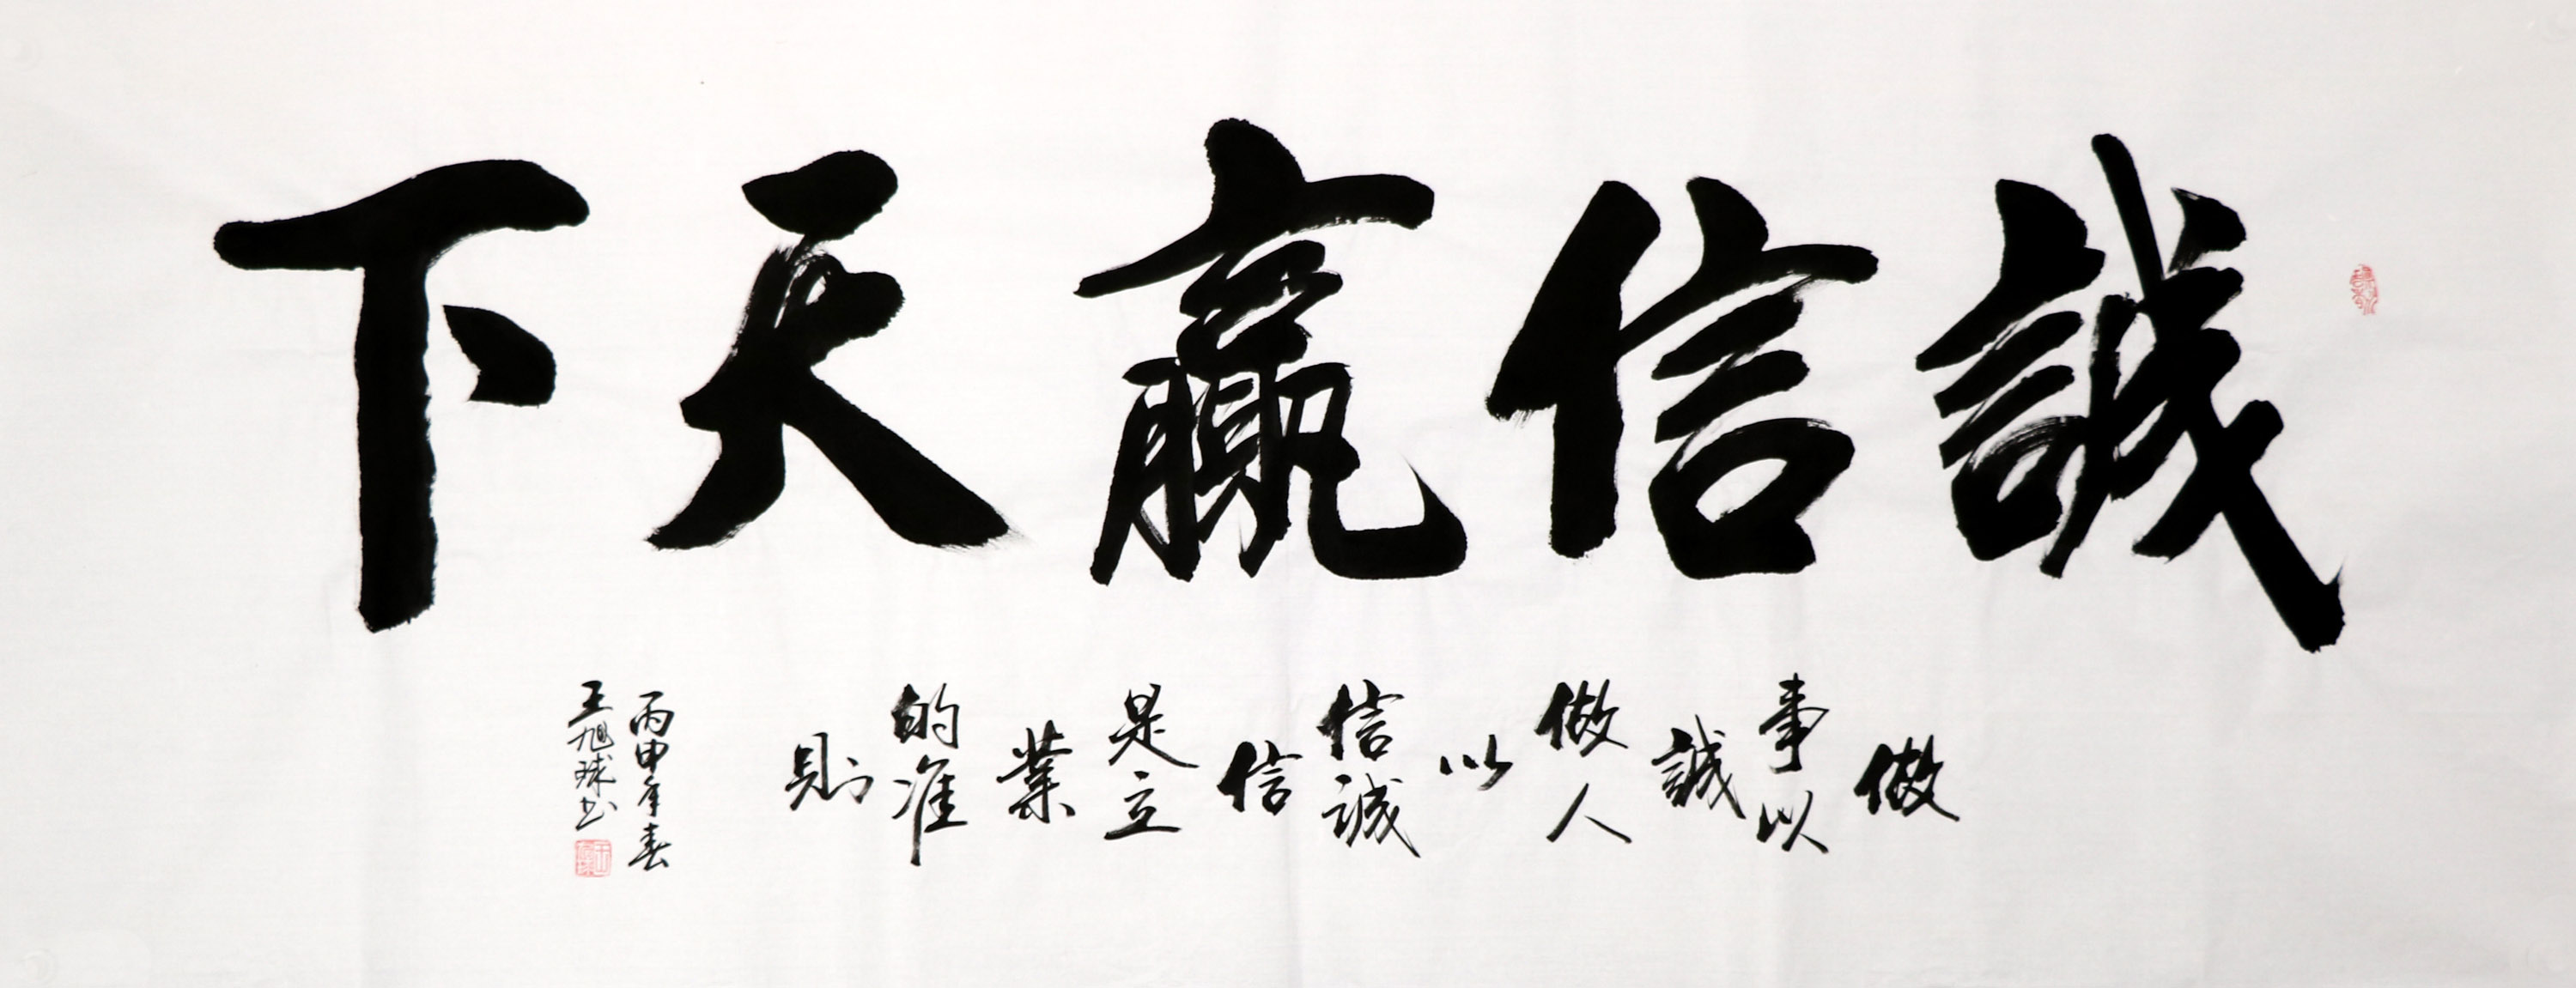 誠信贏天下
做事以誠做人以信誠信是立業的准則
丙申年春
王旭球书